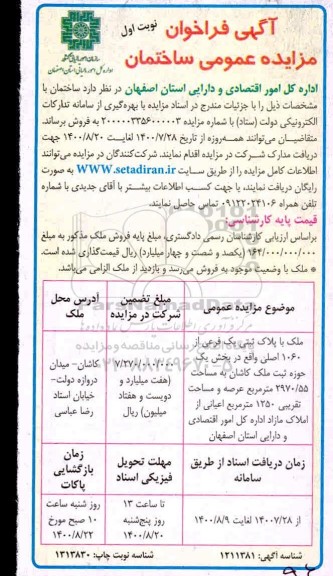 آگهی فراخوان
نوبت اول
مزایده عمومی ساختمان
اداره کل امور اقتصادی و دارایی استان اصفهان در نظر دارد ساختمان با
مشخصات ذیل را با جزئیات مندرج در اسناد مزایده با بهره‌گیری از سامانه تدارکات
الکترونیکی دولت (ستاد) با شماره مزایده ۲۰۰۰۰۰۳۳۵۶۰۰۰۰۰۳ به فروش برساند.
متقاضیان می‌توانند همه‌روزه از تاریخ ۱۴۰۰/۷/۲۸ لغایت ۱۴۰۰/۸/۲۰ جهت
دریافت مدارک شرکت در مزایده اقدام نمایند. شرکت‌کنندگان در مزایده می‌توانند
اطلاعات کامل مزایده را از طریق سایت www.setadiran.ir به صورت
رایگان دریافت نمایند، یا جهت کسب اطلاعات بیشتر با آقای جدیدی با شماره
تلفن همراه ۰۹۱۲۲۰۲۴۱۰۶ تماس حاصل نمایند.
قیمت پایه کارشناسی:
براساس ارزیابی کارشناسان رسمی دادگستری، مبلغ پایه فروش ملک مذکور به مبلغ
۱۶۴/۰۰۰/۰۰۰/۰۰۰ (یکصد و شصت و چهار میلیارد) ریال قیمت‌گذاری شده است.
* ملک با وضعیت موجود به فروش می‌رسد و بازدید از ملک الزامی می‌باشد.
موضوع مزایده عمومی
مبلغ تضمین شرکت در مزایده
آدرس محل ملک
ملک با پلاک ثبتی یک فرعی از
۱۰۶۰ اصلی واقع در بخش یک
حوزه ثبت ملک کاشان به مساحت
۲۹۷۰/۵۵ مترمربع عرصه و مساحت
تقریبی ۱۲۵۰ مترمربع اعیانی از
املاک مازاد اداره کل امور اقتصادی
و دارایی استان اصفهان
(هفت میلیارد و
دویست و هفتاد
میلیون) ریال
کاشان- میدان
دروازه دولت-
خیابان استاد
رضا عباسی
زمان دریافت اسناد از طریق سامانه
مهلت تحویل فیزیکی اسناد
زمان بازگشایی پاکات
از ۱۴۰۰۷/۲۸ لغایت ۱۴۰۰/۸/۹
تا ساعت ۱۳
روز پنج‌شنبه
۱۴۰۰/۸/۲۰
روز شنبه ساعت
۱۰ صبح مورخ
۱۴۰۰/۸/۲۲
شناسه آگهی: ۱۲۱۱۳۸۱
شناسه نوبت چاپ: ۱۳۱۳۸۳۰